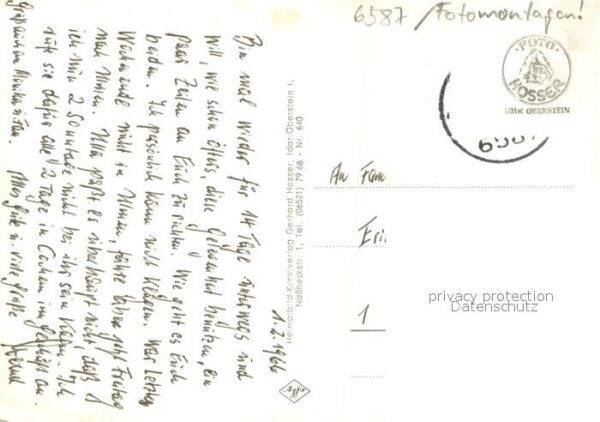 6587 / Fotomontagen!
· FOTO ·
HOSSER
IDAR OBERSTEIN
6587
An Fam
Eri
1
privacy protection
Datenschutz
Heimatbild-Kunstverlag Gerhard Hosser, Idar-Oberstein 1,
Naßheckstr. 1, Tel. (06521) 79 68 - Nr. 640
1.2.1966
Bin mal wieder für 14 Tage unterwegs und
will, wie schon öfters, diese Gelegenheit benutzen ein
paar Zeilen an Euch zu richten. Wie geht es Euch
beiden. Ich persönlich kann nicht klagen. War letztes
Wochenende nicht in
nach. Ulla paßt es überhaupt nicht, daß
ich nun 2 Sonntage nicht bei ihr sein kann. Ich
rufe sie dafür alle 2 Tage in Cochem im Geschäft an.
Alles Gute u. viele Grüße